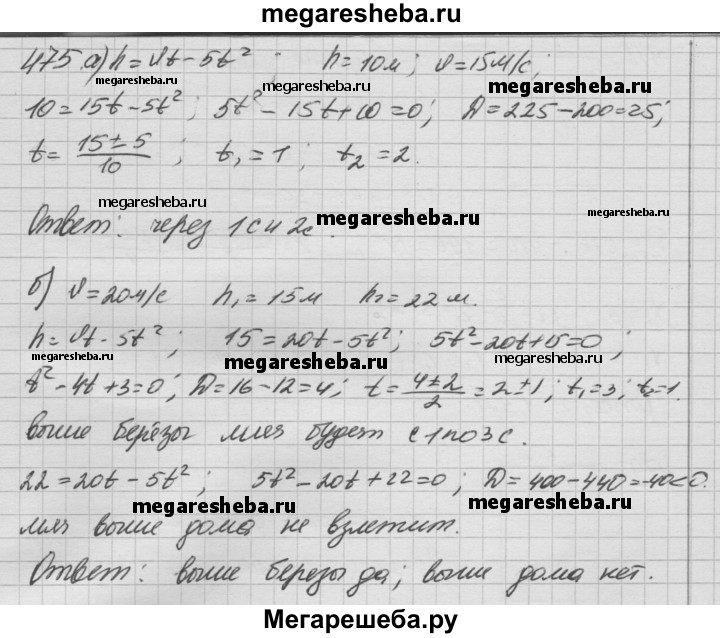 megaresheba.ru
475 а) h = υt - 5t² ; h = 10м ; υ = 15м/с ;
megaresheba.ru megaresheba.ru megaresheba.ru
10 = 15t - 5t² ; 5t² - 15t + 10 = 0 ; Д = 225 - 200 = 25 ;
t = (15 ± 5)/10 ; t₁ = 1 ; t₂ = 2.
megaresheba.ru
Ответ: через 1с и 2с.
megaresheba.ru megaresheba.ru
б) υ = 20м/с h₁ = 15м h₂ = 22 м.
h = υt - 5t² ; 15 = 20t - 5t² ; 5t² - 20t + 15 = 0 ;
megaresheba.ru megaresheba.ru megaresheba.ru
t² - 4t + 3 = 0 ; Д = 16 - 12 = 4 ; t = (4 ± 2)/2 = 2 ± 1 ; t₁ = 3 ; t₂ = 1.
выше берёзы мяч будет с 1 по 3 с.
22 = 20t - 5t² ; 5t² - 20t + 22 = 0 ; Д = 400 - 440 = -40 < 0.
megaresheba.ru megaresheba.ru
мяч выше дома не взлетит.
Ответ: выше березы да ; выше дома нет.
Мегарешеба.ру